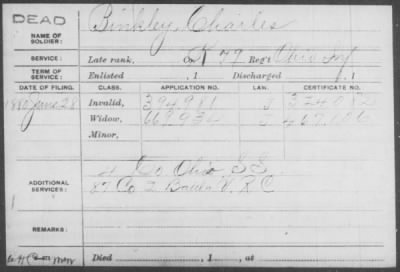 DEAD
NAME OF SOLDIER: Binkley, Charles
SERVICE: Late rank, Co. K 79 Reg't Ohio Inf
TERM OF SERVICE: Enlisted , 1 Discharged , 1
DATE OF FILING. CLASS. APPLICATION NO. LAW. CERTIFICATE NO.
1880 June 28 Invalid, 394981 J
Widow, J
Minor,
ADDITIONAL SERVICES: Co Ohio S.S.
87 Co 2 Batt'n V.R.C.
REMARKS:
Died , 1 , at